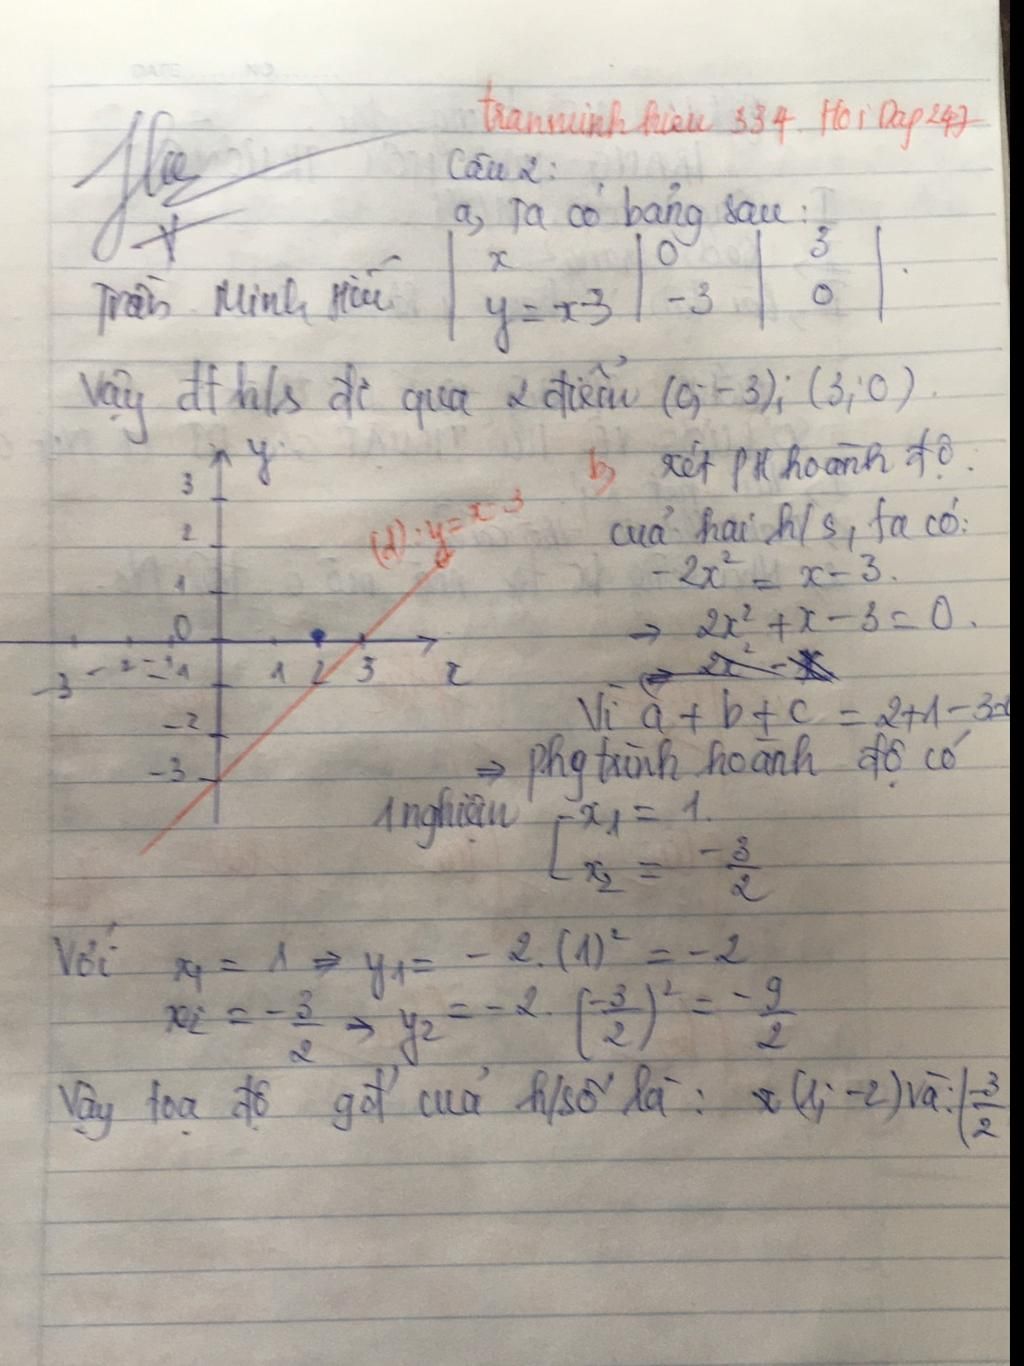 tranminhhieu 334. Hoi Dap 247
Câu 2:
a, Ta có bảng sau:
x 0 3
y = x-3 -3 0
Trần Minh Hiếu
Vậy đt h/s đi qua 2 điểm (0;-3); (3;0).
y
3
2
1
0
-3 -2 -1 1 2 3 x
-2
-3
(d): y = x-3
b, xét pt hoành độ
của hai h/s, ta có:
-2x² = x - 3.
⇒ 2x² + x - 3 = 0.
Vì a + b + c = 2+1-3=0
⇒ phg trình hoành độ có
1 nghiệm x₁ = 1.
x₂ = -3/2
Với x₁ = 1 ⇒ y₁ = -2.(1)² = -2
x₂ = -3/2 ⇒ y₂ = -2.(-3/2)² = -9/2
Vậy toạ độ gđ của h/số là: (1; -2) và: (-3/2